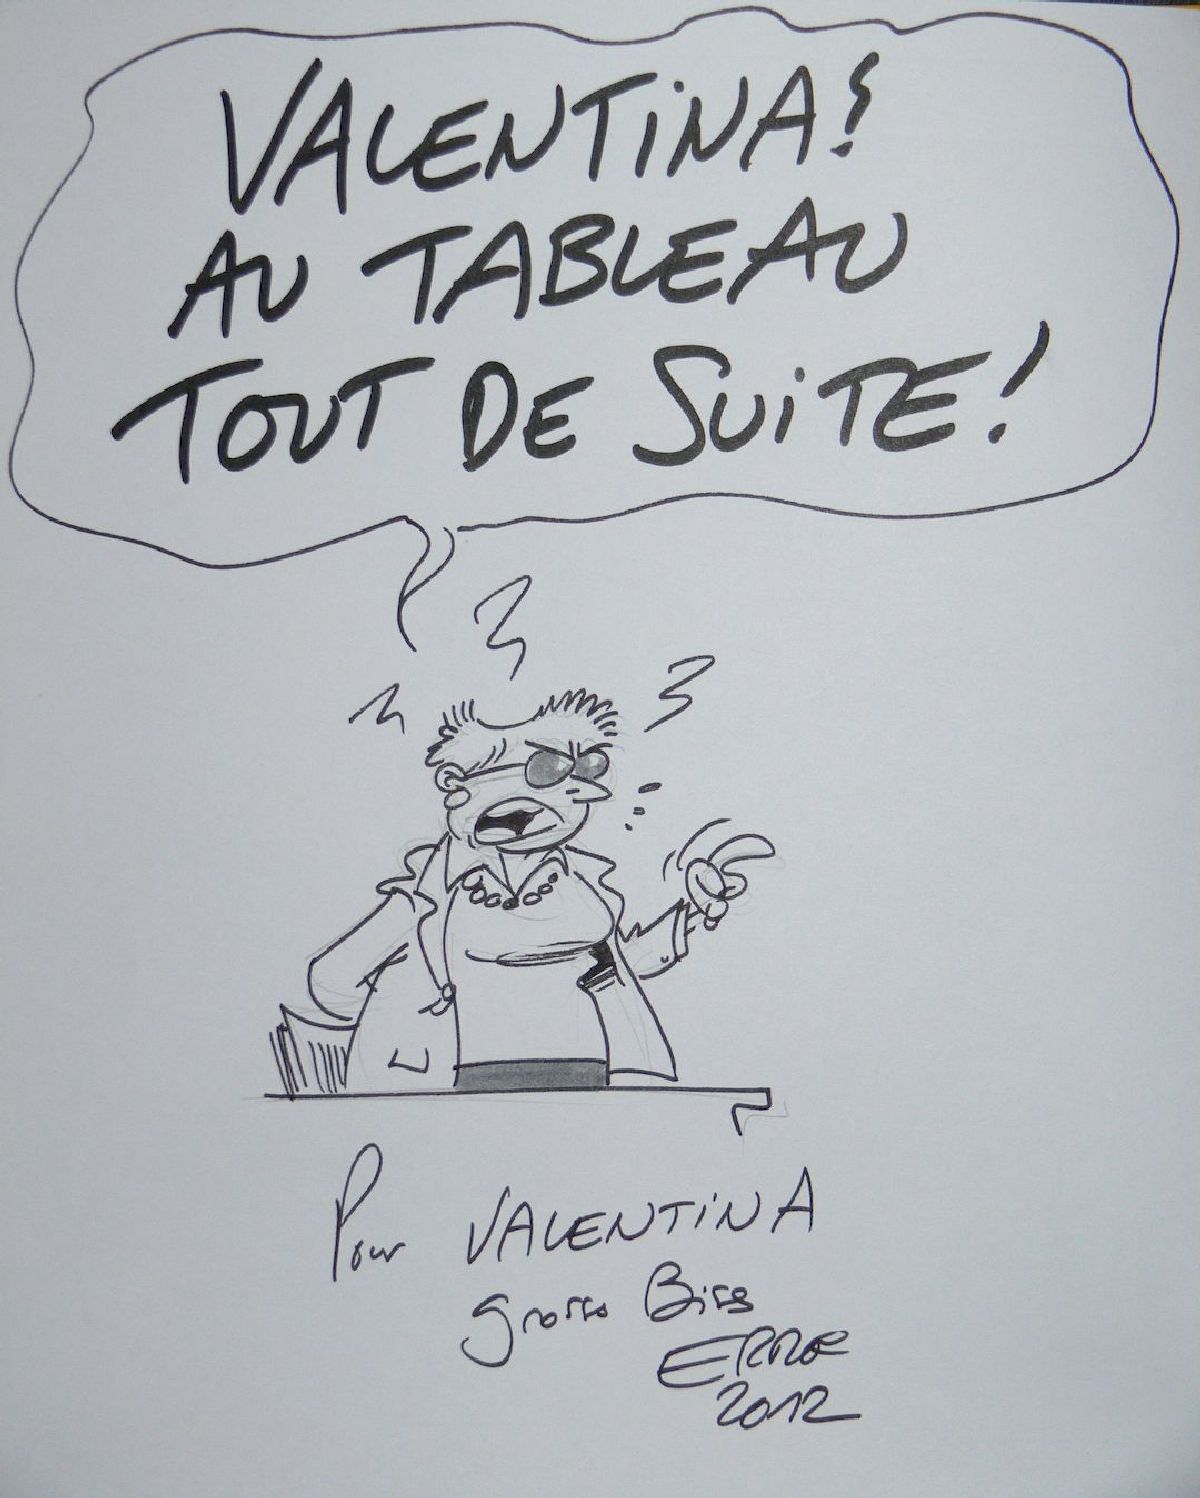 VALENTINA!
AU TABLEAU
TOUT DE SUITE!
Pour VALENTINA
grosses Bises
ERRE
2012